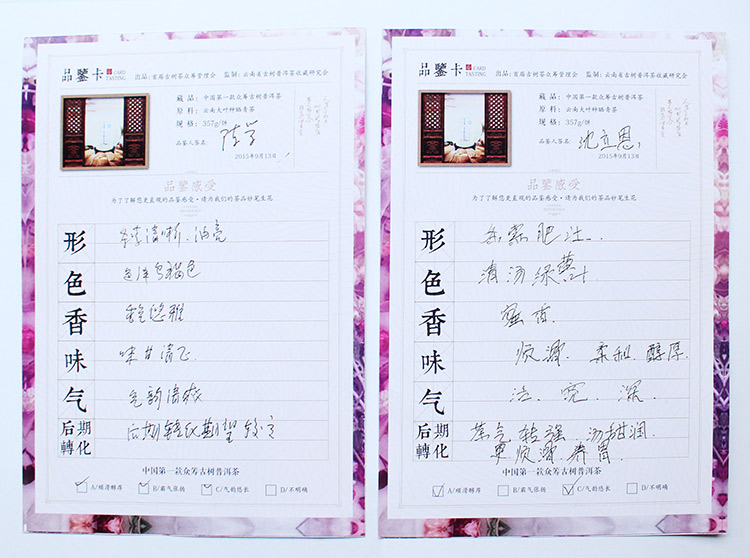 品鉴卡 CARD TASTING 出品:首届古树茶众筹管理会 监制:云南省古树普洱茶收藏研究会
藏品:中国第一款众筹古树普洱茶
原料:云南大叶种晒青茶
规格:357g/饼
品鉴人签名:
2015年9月13日
品鉴感受
为了了解您更直观的品鉴感受·请为我们的茶品妙笔生花
形 清晰、油亮
色 色泽乌褐色
香 悠雅
味 味甘清正
气 气韵清
后期轉化 后期转化期望较高
中国第一款众筹古树普洱茶
A/顺滑醇厚 B/霸气张扬 C/气韵悠长 D/不明确
品鉴卡 CARD TASTING 出品:首届古树茶众筹管理会 监制:云南省古树普洱茶收藏研究会
藏品:中国第一款众筹古树普洱茶
原料:云南大叶种晒青茶
规格:357g/饼
品鉴人签名: 沈立恩
2015年9月13日
品鉴感受
为了了解您更直观的品鉴感受·请为我们的茶品妙笔生花
形 条索肥壮
色 清汤绿叶
香 蜜香
味 顺滑、柔和、醇厚
气 沉、宽、深
后期轉化 茶气转强 汤甜润
更顺滑 养胃
中国第一款众筹古树普洱茶
A/顺滑醇厚 B/霸气张扬 C/气韵悠长 D/不明确